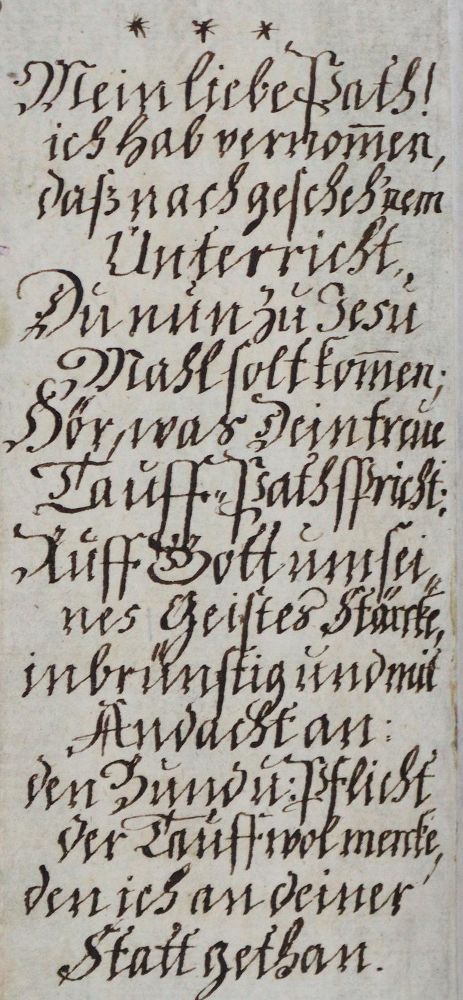 * * *
Mein liebe Path!
ich hab vernom̅en,
daß nach gescheh'nem
Unterricht,
Du nun zu Jesu
Mahl solt kom̅en;
Hör, was Dein treue
Tauff-Path spricht:
Ruff Gott um sei-
nes Geistes Stärcke,
inbrünstig und mit
Andacht an:
den Bund u: Pflicht
der Tauff wol mercke,
den ich an deiner
Statt gethan.